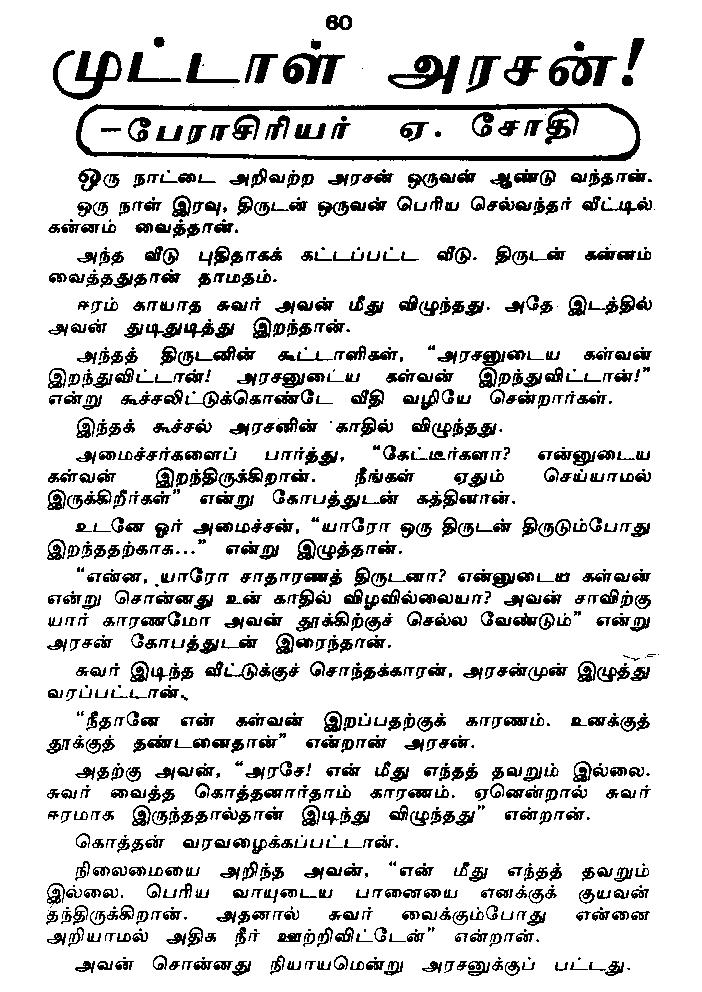 60
முட்டாள் அரசன்!
—பேராசிரியர் ஏ. சோதி
ஒரு நாட்டை அறிவற்ற அரசன் ஒருவன் ஆண்டு வந்தான்.
ஒரு நாள் இரவு, திருடன் ஒருவன் பெரிய செல்வந்தர் வீட்டில்
கன்னம் வைத்தான்.
அந்த வீடு புதிதாகக் கட்டப்பட்ட வீடு. திருடன் கன்னம்
வைத்ததுதான் தாமதம்.
ஈரம் காயாத சுவர் அவன் மீது விழுந்தது. அதே இடத்தில்
அவன் துடிதுடித்து இறந்தான்.
அந்தத் திருடனின் கூட்டாளிகள், “அரசனுடைய கள்வன்
இறந்துவிட்டான்! அரசனுடைய கள்வன் இறந்துவிட்டான்!”
என்று கூச்சலிட்டுக்கொண்டே வீதி வழியே சென்றார்கள்.
இந்தக் கூச்சல் அரசனின் காதில் விழுந்தது.
அமைச்சர்களைப் பார்த்து, “கேட்டீர்களா? என்னுடைய
கள்வன் இறந்திருக்கிறான். நீங்கள் ஏதும் செய்யாமல்
இருக்கிறீர்கள்” என்று கோபத்துடன் கத்தினான்.
உடனே ஓர் அமைச்சன், “யாரோ ஒரு திருடன் திருடும்போது
இறந்ததற்காக...” என்று இழுத்தான்.
“என்ன, யாரோ சாதாரணத் திருடனா? என்னுடைய கள்வன்
என்று சொன்னது உன் காதில் விழவில்லையா? அவன் சாவிற்கு
யார் காரணமோ அவன் தூக்கிற்குச் செல்ல வேண்டும்” என்று
அரசன் கோபத்துடன் இரைந்தான்.
சுவர் இடிந்த வீட்டுக்குச் சொந்தக்காரன், அரசன்முன் இழுத்து
வரப்பட்டான்.
“நீதானே என் கள்வன் இறப்பதற்குக் காரணம். உனக்குத்
தூக்குத் தண்டனைதான்” என்றான் அரசன்.
அதற்கு அவன், “அரசே! என் மீது எந்தத் தவறும் இல்லை.
சுவர் வைத்த கொத்தனார்தாம் காரணம். ஏனென்றால் சுவர்
ஈரமாக இருந்ததால்தான் இடிந்து விழுந்தது” என்றான்.
கொத்தன் வரவழைக்கப்பட்டான்.
நிலைமையை அறிந்த அவன், “என் மீது எந்தத் தவறும்
இல்லை. பெரிய வாயுடைய பானையை எனக்குக் குயவன்
தந்திருக்கிறான். அதனால் சுவர் வைக்கும்போது என்னை
அறியாமல் அதிக நீர் ஊற்றிவிட்டேன்” என்றான்.
அவன் சொன்னது நியாயமென்று அரசனுக்குப் பட்டது.